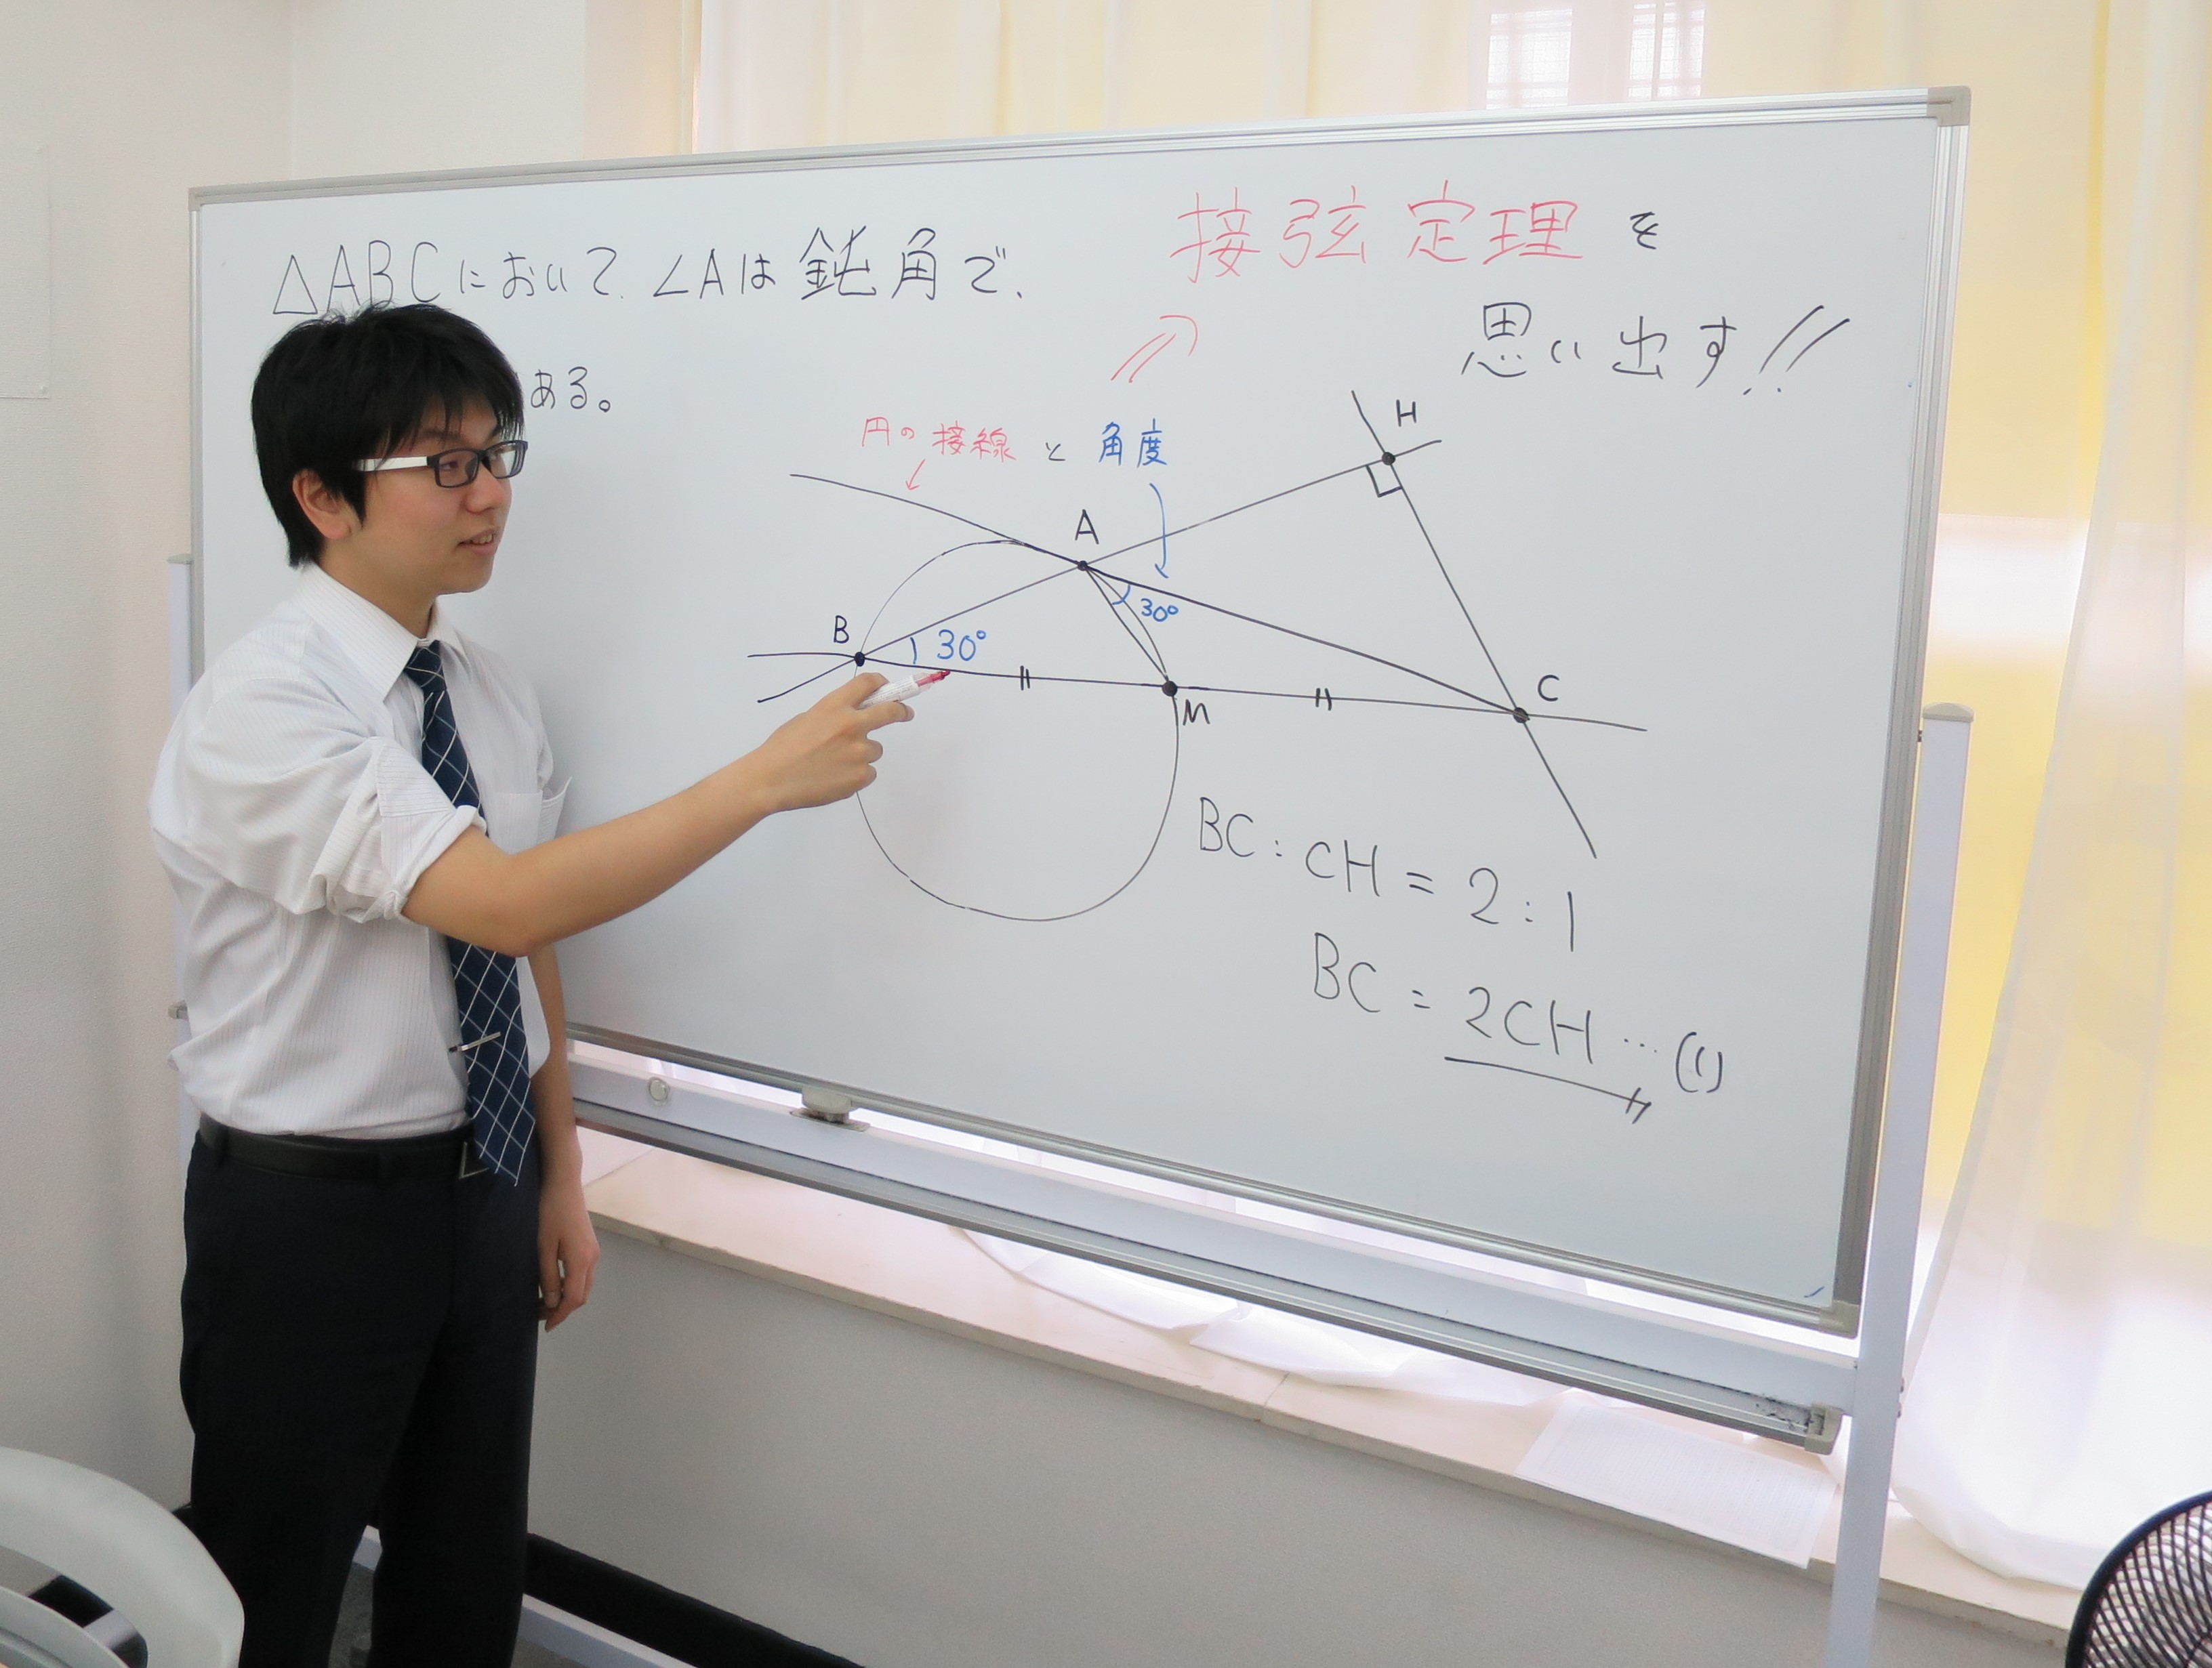 △ABCにおいて、∠Aは鈍角で、
ある。
接弦定理を
思い出す!!
円の接線と角度
H
A
30°
B
30°
M
C
BC:CH=2:1
BC=2CH…(1)